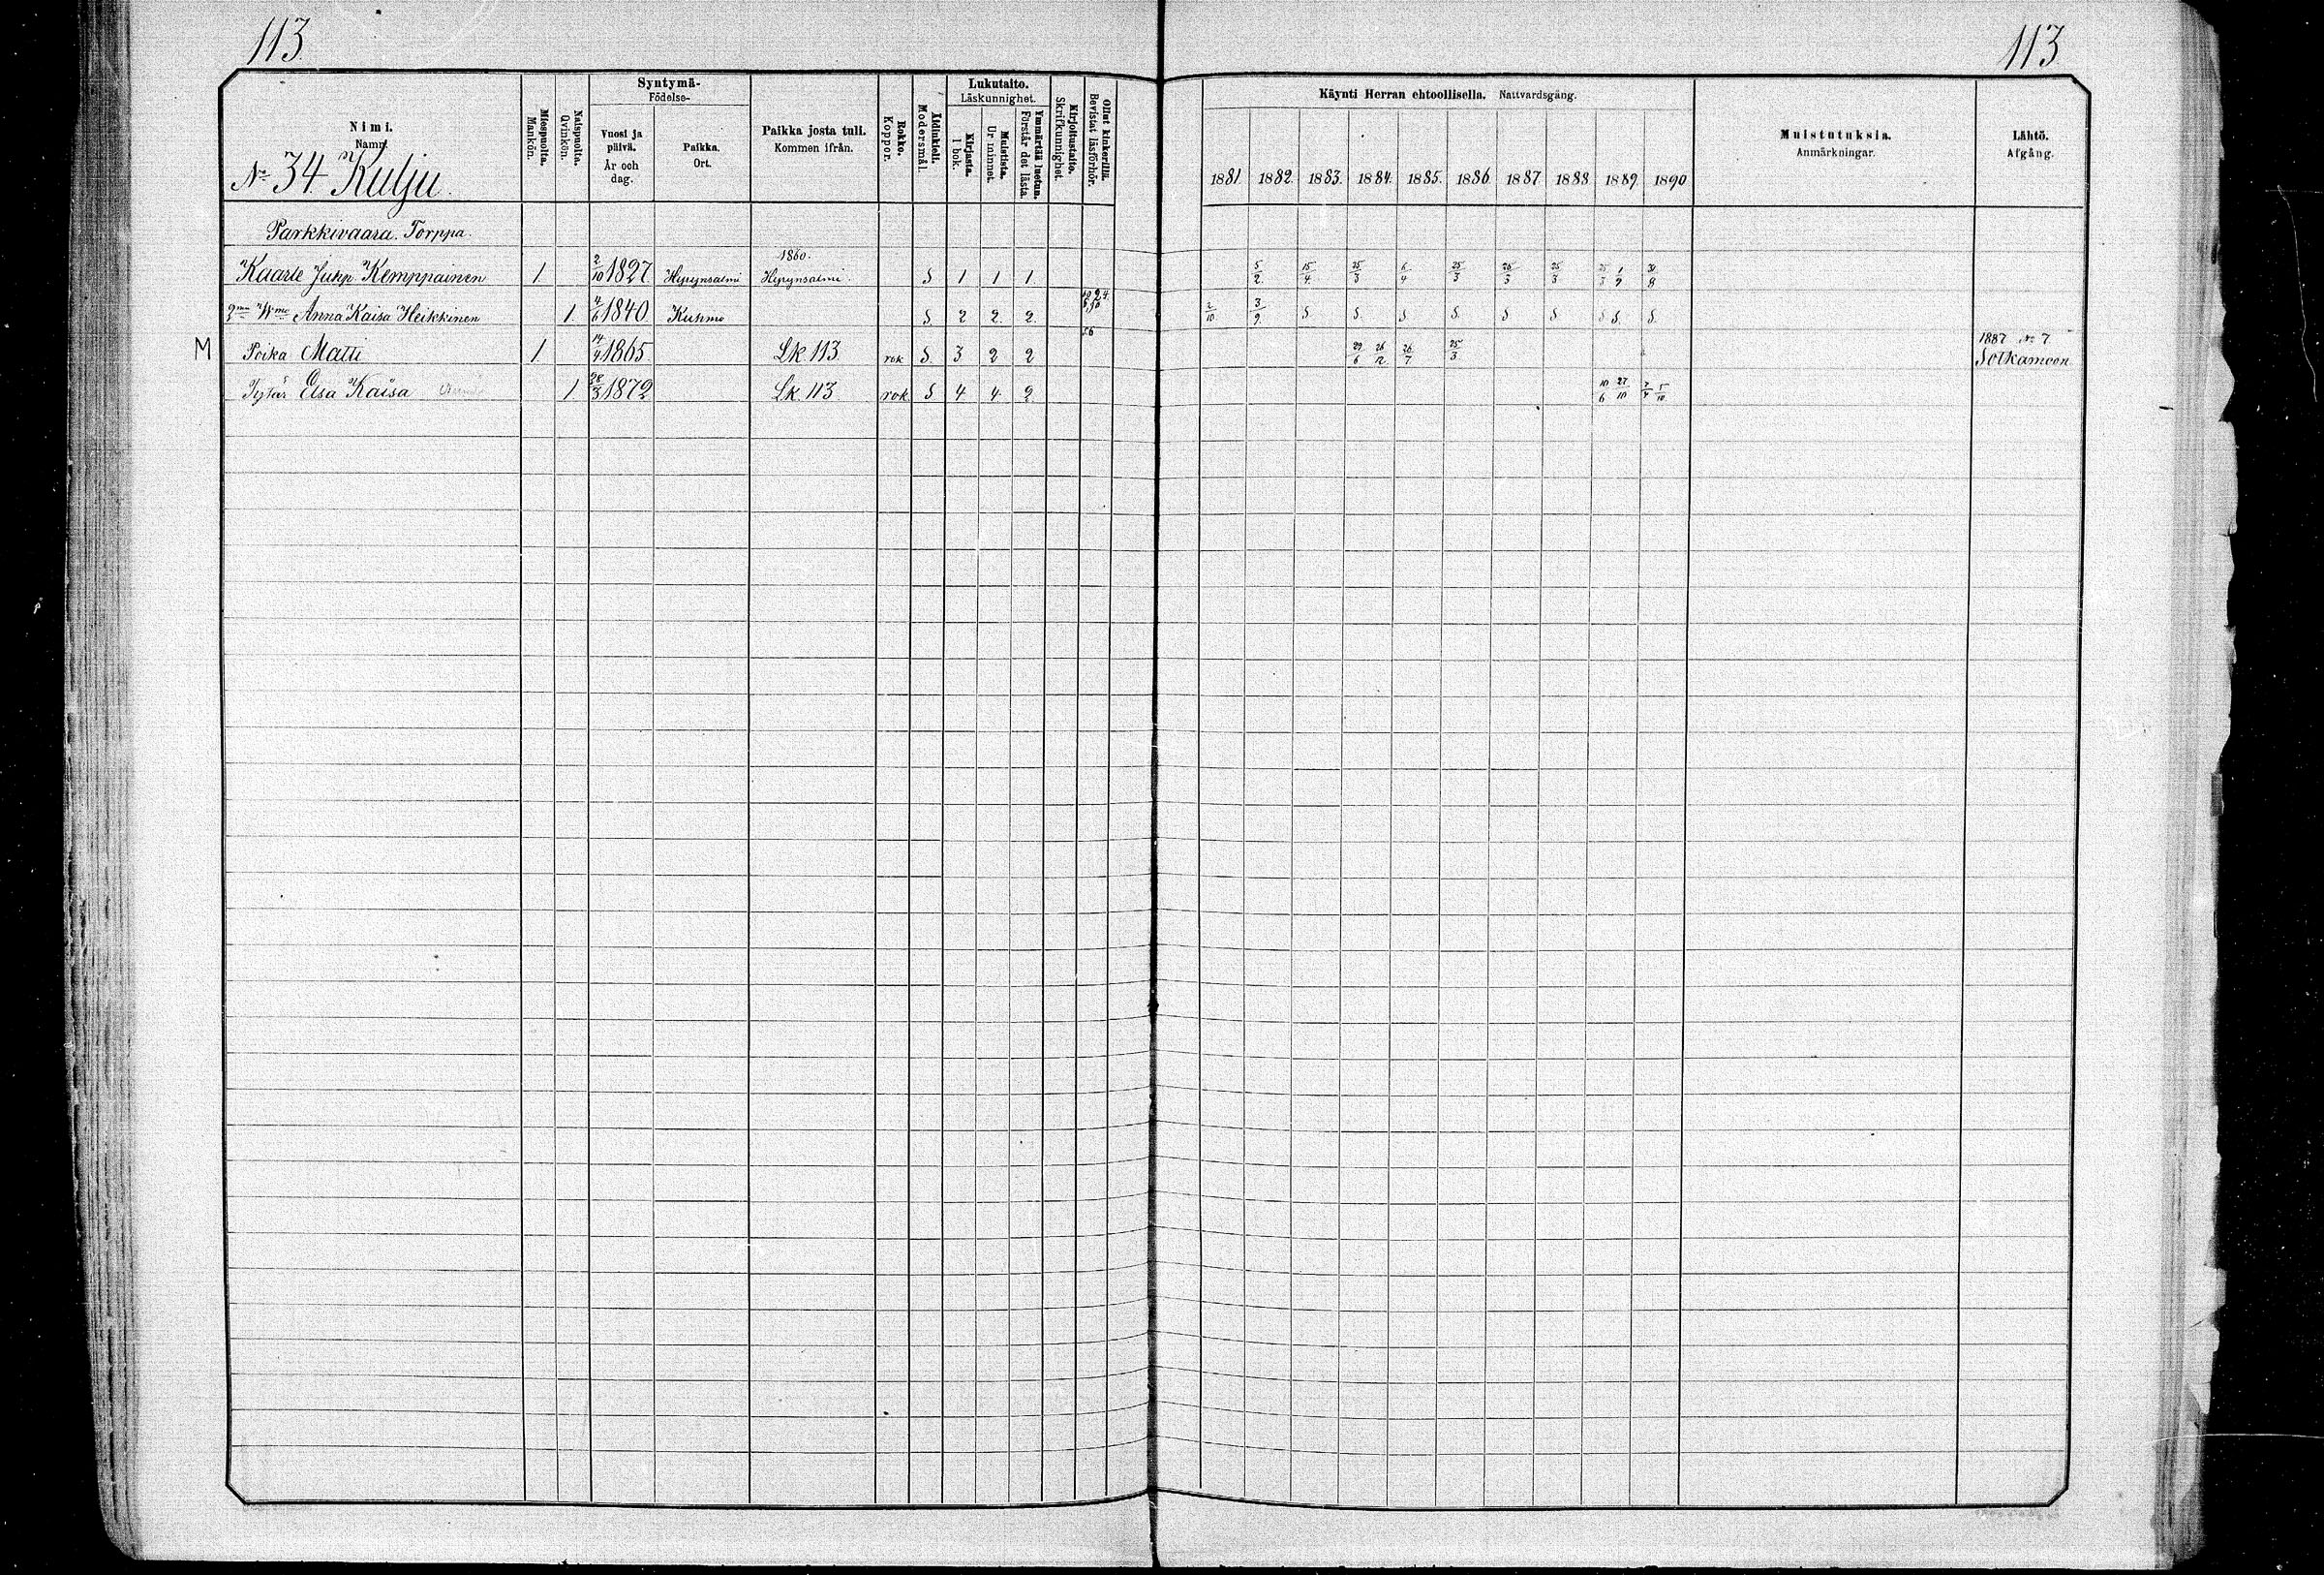 113.
113
Nimi.
Namn.
Miespuolta.
Mankön.
Naispuolta.
Qvinkön.
Syntymä-
Födelse-
Vuosi ja päivä.
År och dag.
Paikka.
Ort.
Paikka josta tuli.
Kommen ifrån.
Rokko.
Koppor.
Äidinkieli.
Modersmål.
Lukutaito.
Läskunnighet.
Kirjasta.
I bok.
Muistista.
Ur minnet.
Ymmärtää luetun.
Förstår det lästa.
Kirjoitustaito.
Skrifkunnighet.
Ollut kinkerillä.
Bevistat läsförhör.
Käynti Herran ehtoollisella. Nattvardsgång.
1881. 1882. 1883. 1884. 1885. 1886. 1887. 1888 1889. 1890
Muistutuksia.
Anmärkningar.
Lähtö.
Afgång.
No 34 Kulju.
Parkkivaara. Torppa.
1860.
Kaarle Juhp Kemppainen 1 2/10 1827. Hyrynsalmi Hyrynsalmi. S 1 1 1. 5/2. 15/4. 25/3 6/4 25/3 25/3 25/3 25/3 30/8
2mn Wmo Anna Kaisa Heikkinen 1. 1840. Kuhmo S. 2 2. 2. 2/10 3/9. S S. S S. S S S S. S.
M Poika Matti 1 14/4 1865. Lk 113 rok S. 3 2 2 29/6 26/12 26/7 25/3 1887 No 7 Sotkamoon
Tytär Elsa Kaisa 1. 28/3 1872 Lk. 113. rok S 4 4. 2. 10/6 27/10 5/10